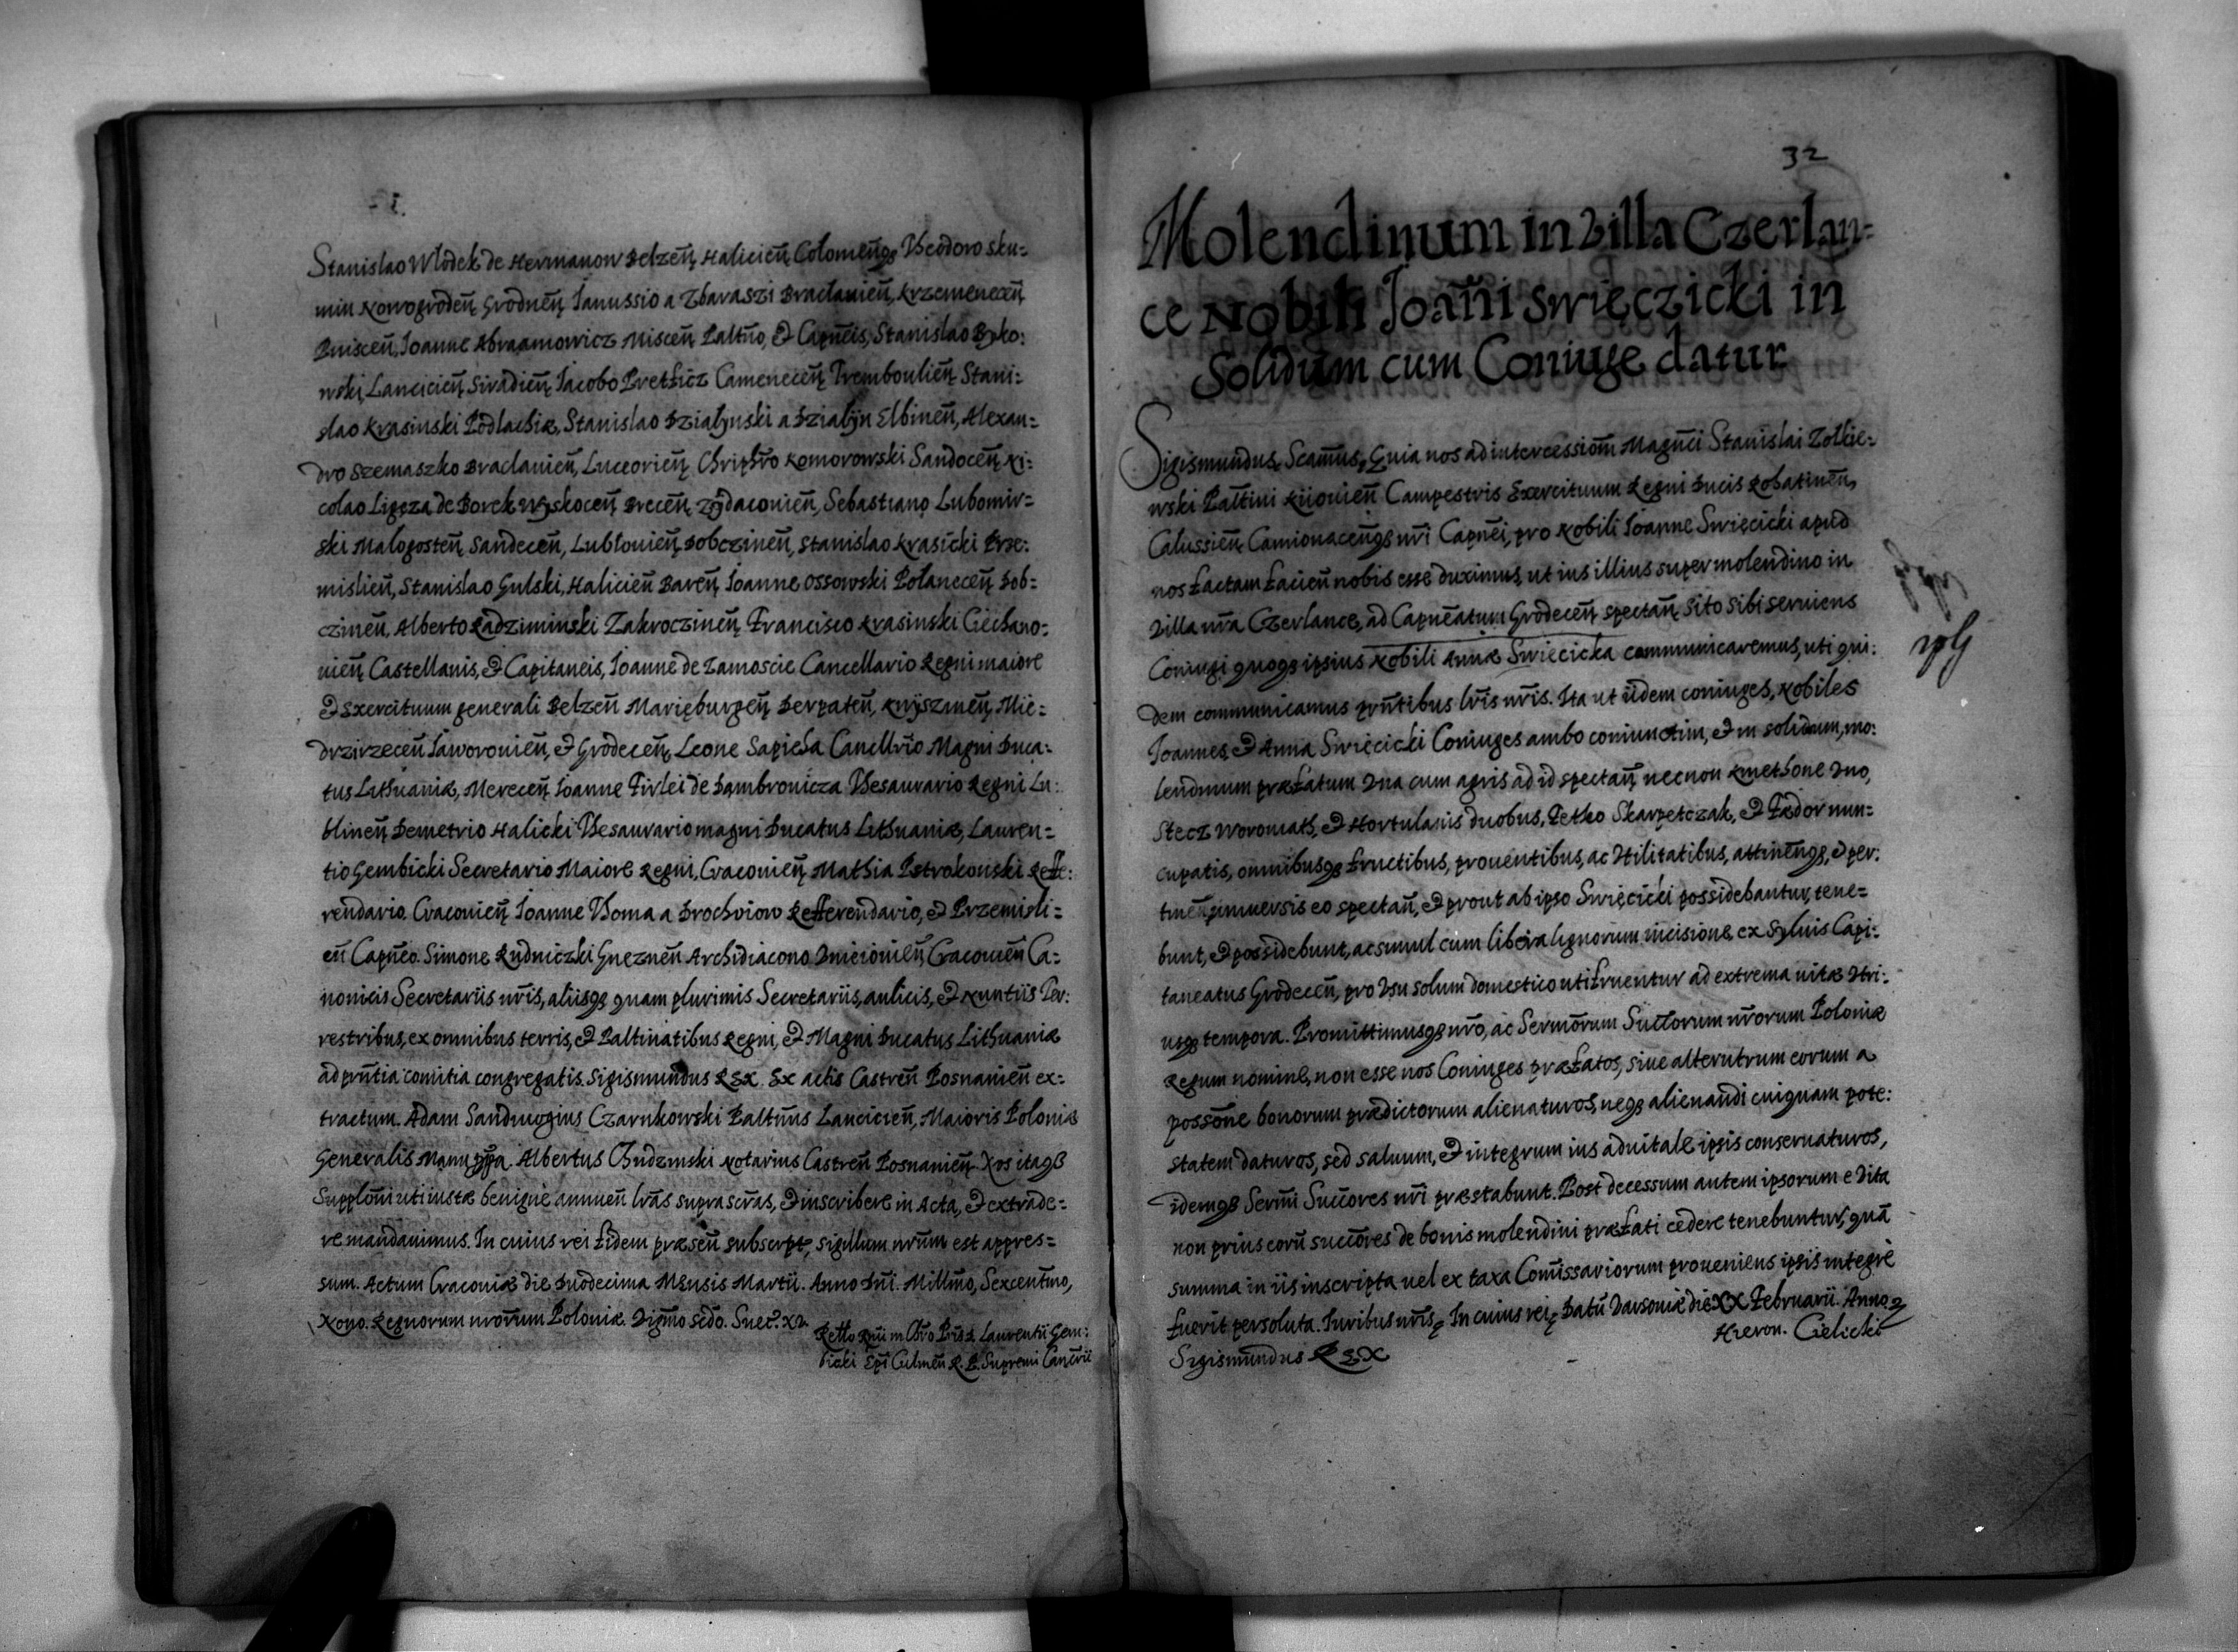 Stanislao Włodek de Hermanow Belzeñ, Halicieñ, Colomeñqȝ Theodoro sku=
min Nowogrodeñ, Grodneñ, Janussio a Zbaraszi Bracłauieñ, Krzemeneceñ
Pinsceñ, Joanne Abraamowicz Misceñ Paltño, & Capñeis, Stanislao Byko:
wski, Lancicieñ, Siradieñ, Jacobo Pretficz Cameneceñ, Tremboulieñ, Stani:
slao Krasinski Podlachiæ, Stanislao Działynski a Działyn Elbineñ, Alexan=
dro Szemaszko Braclauieñ, Luceorieñ, Chriphro Komorowski Sandoceñ, Ni:
colao Ligęza de Borek Wyskoceñ Breceñ, Zydaconieñ, Sebastiano Lubomir=
ski Małogosteñ, Sandeceñ, Lubłouieñ, Dobczineñ, Stanislao Krasicki Prze:
mislieñ, Stanislao Gulski, Halicieñ Bareñ, Joanne Ossowski Połaneceñ, Dob=
czineñ, Alberto Radziminski Zakroczineñ, Francisco Krasinski Ciechano:
uieñ Castellanis, & Capitaneis, Joanne de Zamoscie Cancellario Regni maiore
& Exercituum generali Belzeñ Marięburgeñ, Derpateñ, Knyszineñ, Mie=
drzirzeceñ Jaworouieñ, & Grodeceñ, Leone Sapieha Cancllrio Magni Duca=
tus Lithuaniæ, Mereceñ Joanne Firlei de Dąmbrouicza Thesaurario Regni Lu:
blineñ, Demetrio Halicki Thesaurario magni Ducatus Lithuaniæ, Lauren=
tio Gembicki Secretario Maiore Regni, Cracouieñ, Mathia Pstrokonski Reffe:
rendario, Cracouieñ, Joanne Thoma a Drochoiow Refferendario, & Przemisli=
eñ Capñeo. Simone Rudniczki Gnezneñ Archidiacono Cracouieñ Ca=
nonicis Secretariis nris, aliisqȝ quam plurimis Secretariis, aulicis, & Nuntiis Ter:
restribus, ex omnibus terris, & Paltinatibus Regni, & Magni Ducatus Lithuaniæ
ad prñtia comitia congregatis. Sigismundus Rex. Ex actis Castreñ Posnanieñ ex=
tractum. Adam Sandiuogius Czarnkowski Paltñus Lancicieñ, Maioris Poloniæ
Generalis Manu ppa. Albertus Chudzinski Notarius Castreñ Posnanieñ. Nos itaqȝ
Supploñi uti iustæ benigne annueñ lras suprascras, & inscribere in Acta, & extrade=
re mandauimus. In cuius rei fidem præseñ subscrpt, sigillum nrum est appres=
sum. Actum Cracouiæ die Duodecima Mensis Martii. Anno Dñi. Millmo, Sexcentmo,
Nono. Regnorum nrorum Poloniæ. Vigmo sedo. Suet. XV.
Retto Rñdi in Chro Pris D. Laurentii Gem:
bicki Epi Culmeñ R. P. Supremi Cancrii
32
Molendinum in Villa Czerlan=
ce Nobili Joañi Swięczicki in
Solidum cum Coniuge datur
Sigismundus, Scamus, Quia nos ad intercessiom Magñci Stanislai Zołkie=
wski Paltini Kiiouieñ Campestris Exercituum Regni Ducis Rohatineñ,
Calussieñ, Camionaceñqȝ nri Capñei, pro Nobili Joanne Swięcicki apud
nos factam facieñ nobis esse duximus, ut ius illius super molendino in
Villa nra Czerlance, ad Capñeatum Grodeceñ spectañ, sito sibi seruiens
Coniugi quoqȝ ipsius Nobili Annæ Swięcicka communicaremus, uti qui:
dem communicamus prñtibus lris nris. Ita ut iidem coniuges, Nobiles
Joannes, & Anna Swięcicki Coniuges ambo coniunctim, & in solidum, mo:
lendinum præfatum Vna cum agris ad id spectañ, necnon Kmethone Vno,
Stecz Woromath, & Hortulanis duobus, Fetko Skarpetczak, & Fædor nun=
cupatis, omnibusqȝ fructibus, prouentibus, ac Vtilitatibus, attineñqȝ, & per:
tineñ, uniuersis eo spectañ, & prout ab ipso Swięcicki possidebantur, tene=
bunt, & possidebunt, ac simul cum libera lignorum incisione, ex Syluis Capi:
taneatus Grodeceñ, pro Vsu solum domestico utifruentur ad extrema uitæ Vtri:
usqȝ tempora. Promittimusqȝ nro, ac Sermorum Suctorum nrorum Poloniæ
Regum nomine, non esse nos Coniuges præfatos, siue alterutrum eorum a
possõne bonorum prædictorum alienaturos, neqȝ alienandi cuiquam pote:
statem daturos, sed saluum, & integrum ius aduitale ipsis conseruaturos,
idemqȝ Sermi Succores nri præstabunt. Post decessum autem ipsorum e Vita
non prius eorũ succores de bonis molendini præfati cedere tenebuntur, quã
summa in iis inscripta uel ex taxa Comissariorum proueniens ipsis integre
fuerit persoluta. Iuribus nris. In cuius rei. Datũ Varsouiæ die XX Februarii. Anno
Hieron. Cielicki
Sigismundus Rex